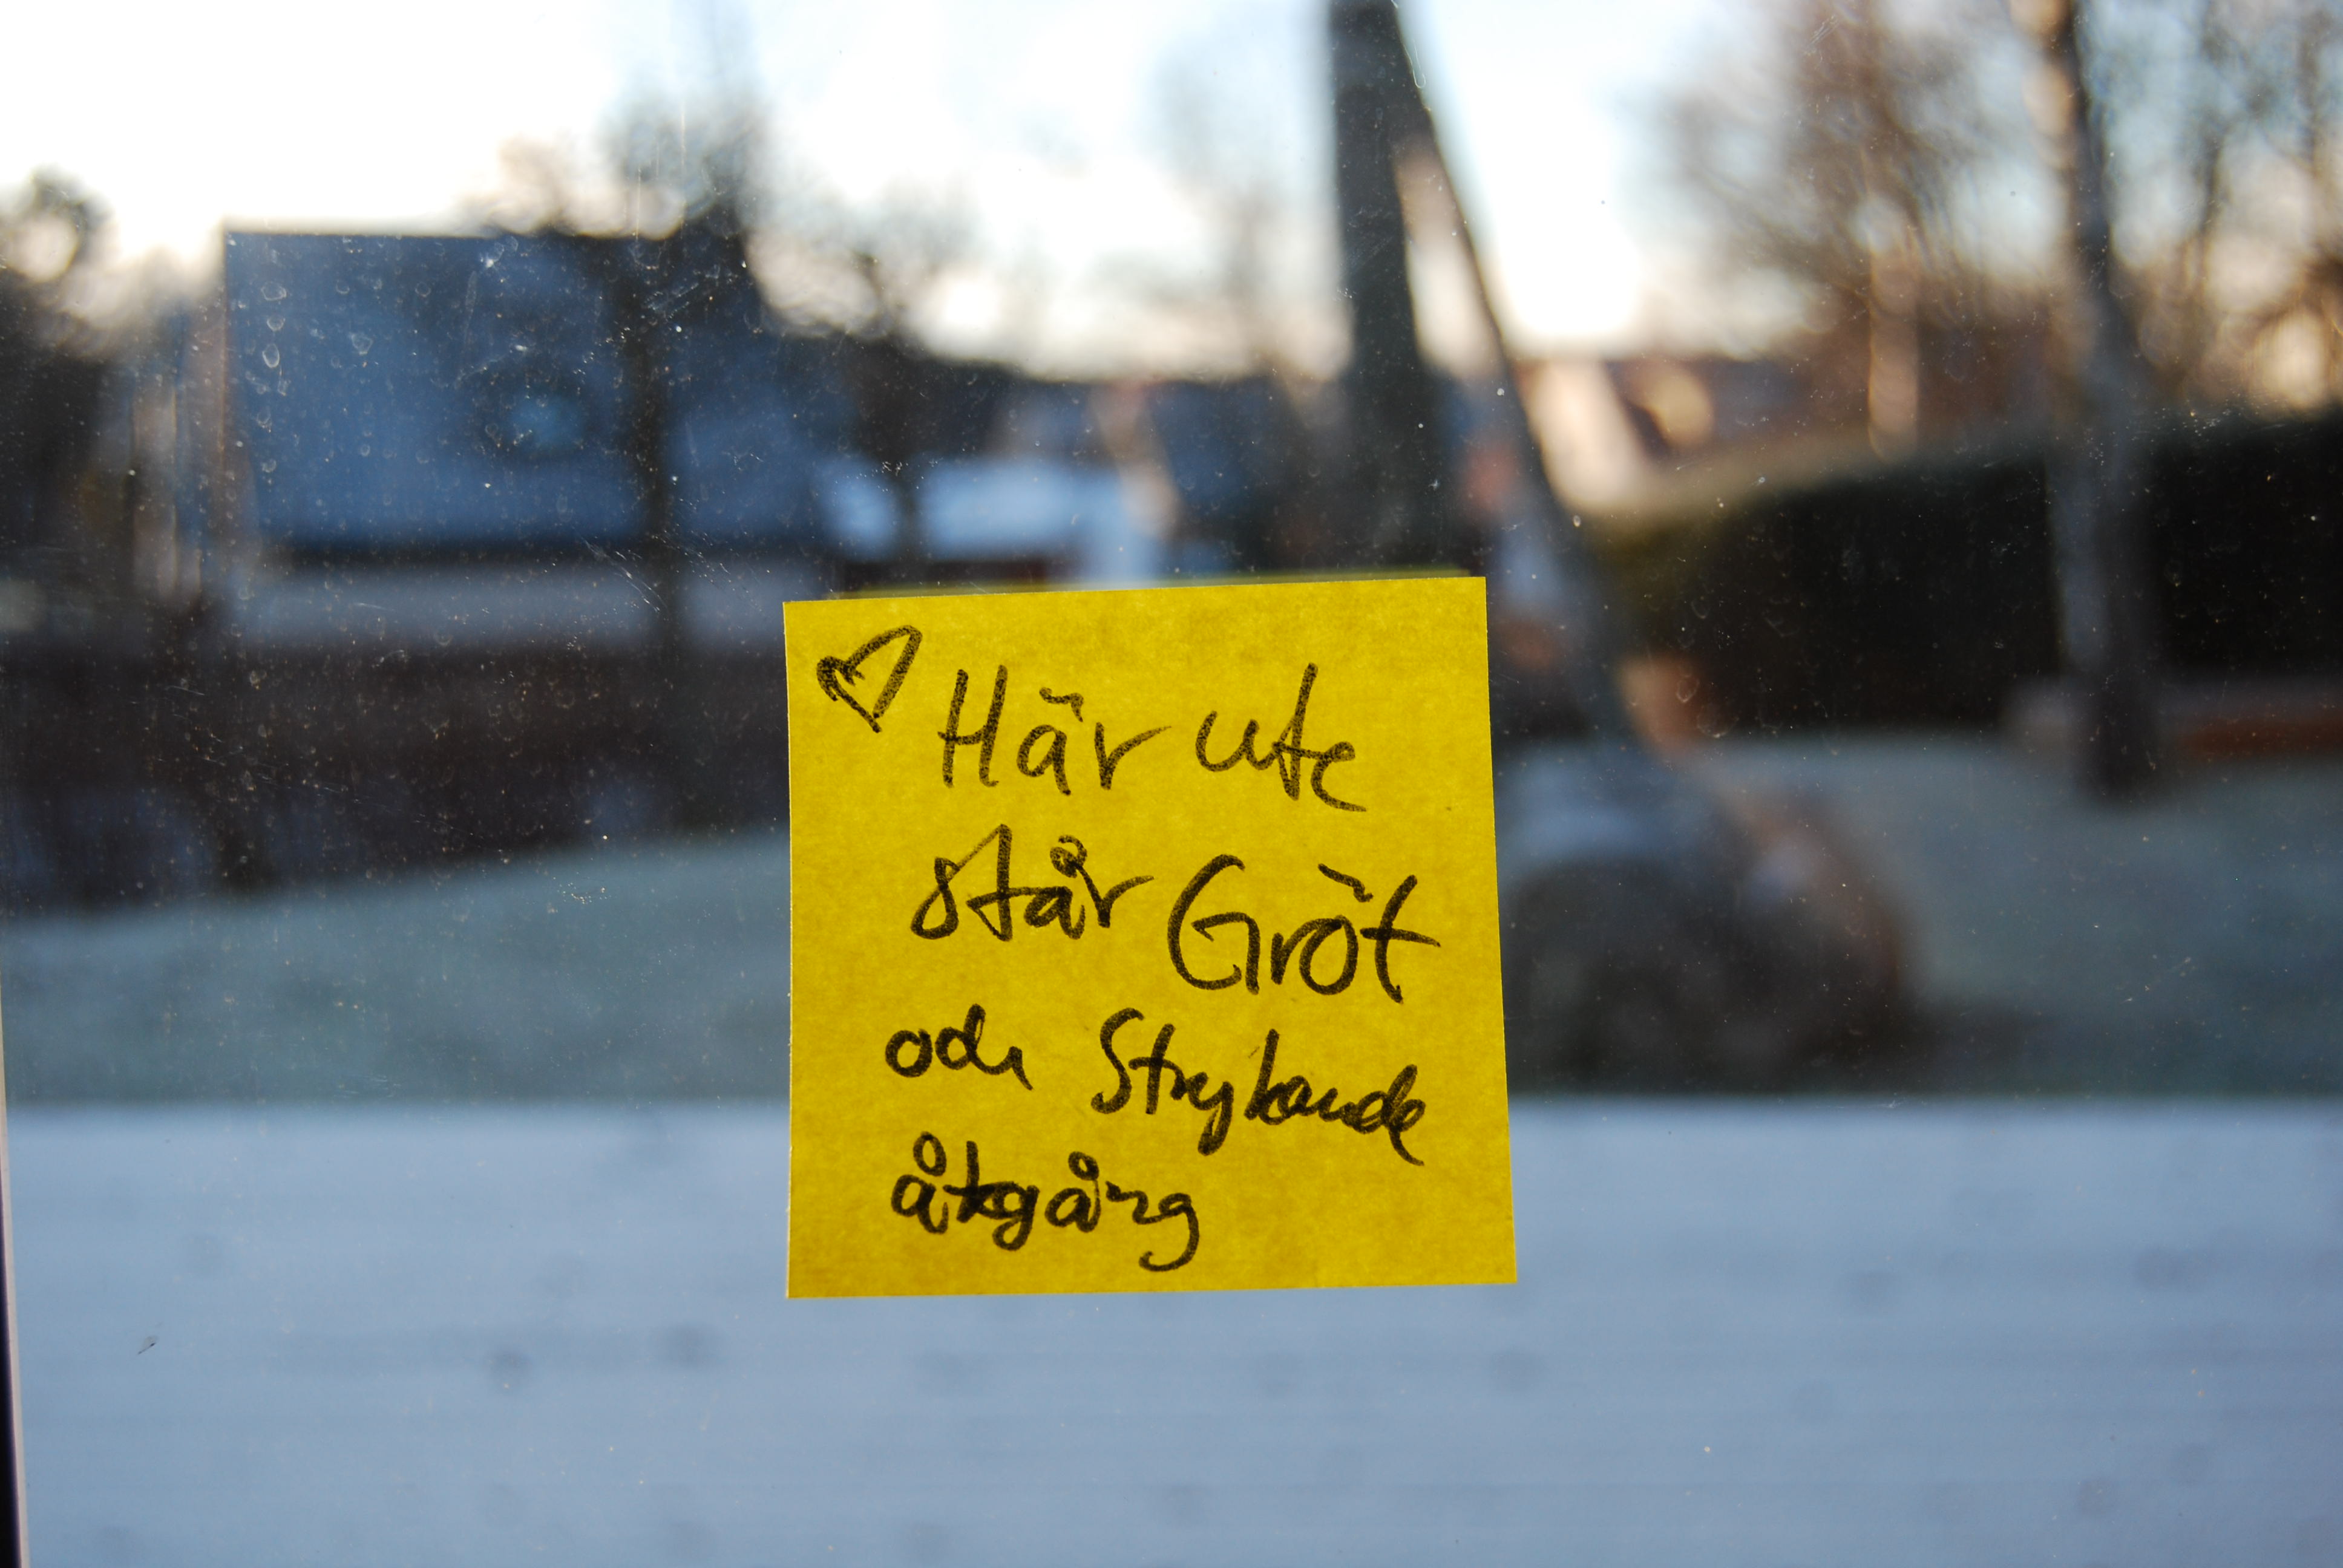 ♡ Här ute
står Gröt
och Strykande
åtgång